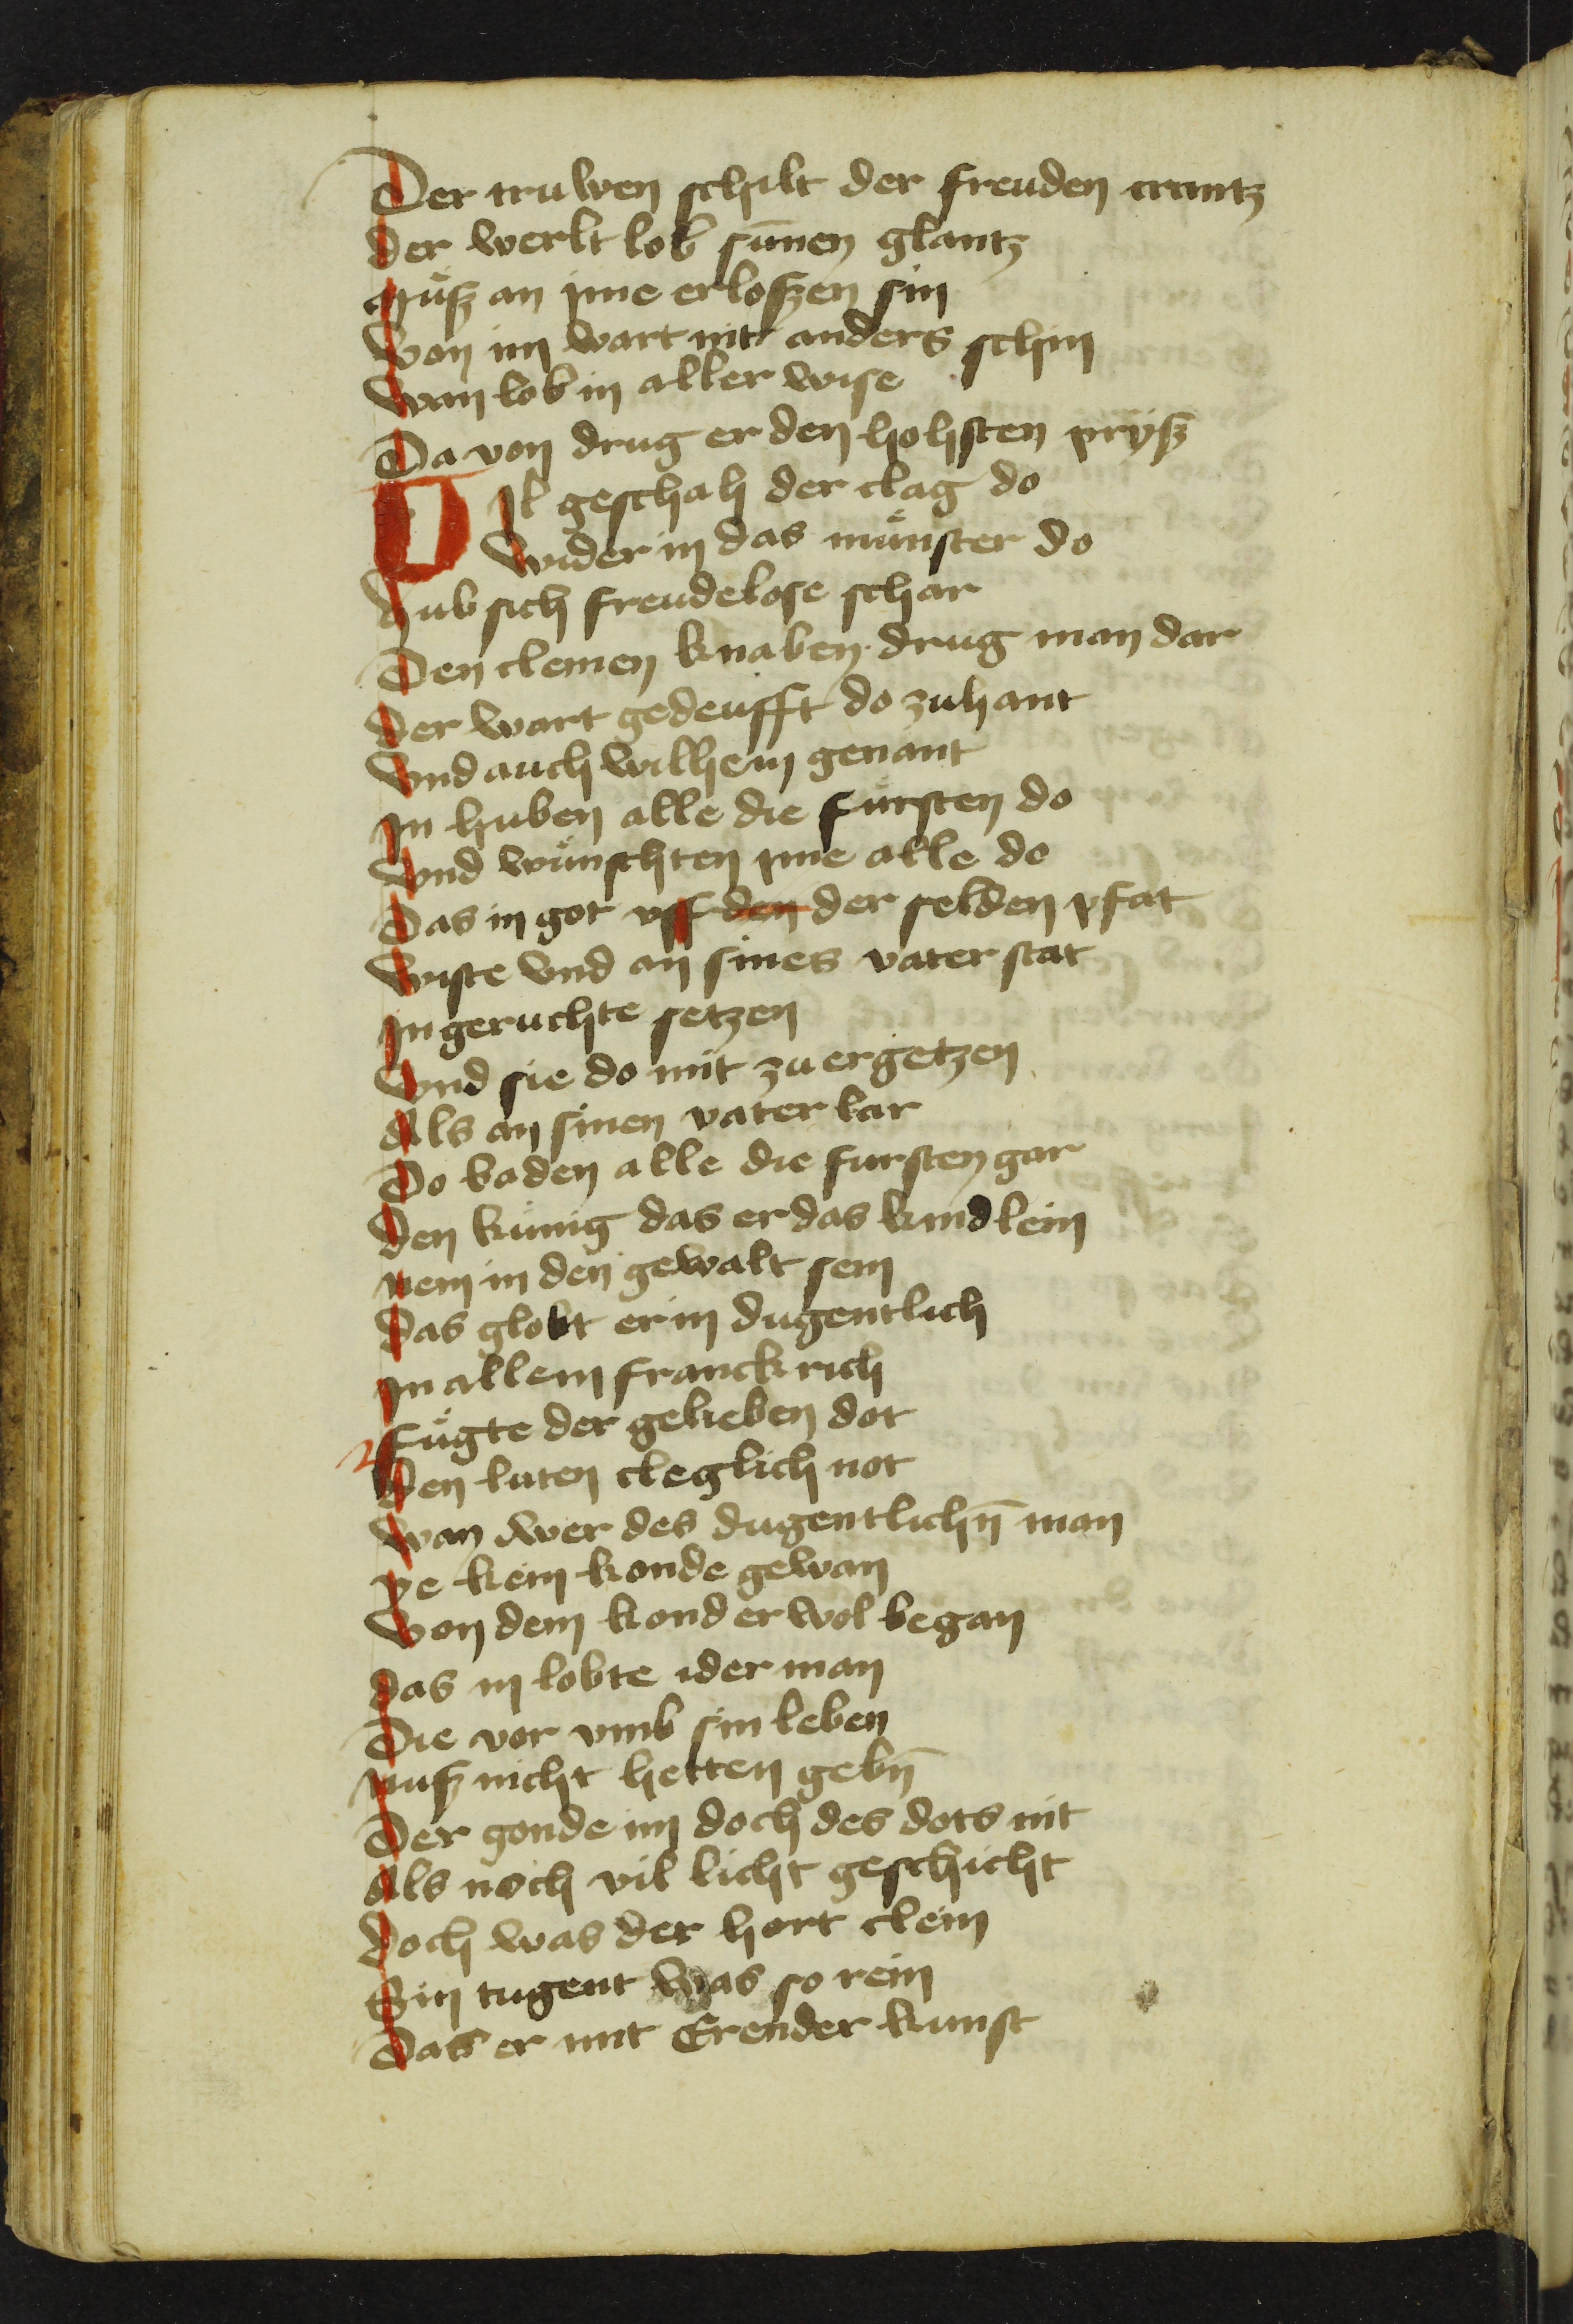 Der truwen schilt der freuden crantz
der werlt lob sūnen glantz
Muͤß an yme erloszen sin
Von im wart nit anders schin
Wan lob in aller wise
Da von drug er den hohsten pryß
VJl geschah der clag do
Wider in das muͤnster do
Hub sich freudelose schar
Den cleinen knaben drug man dar
Der wart gedeufft do zuhant
Vnd auch wilhem genant
Jn huben alle die fuͤrsten do
Vnd wuͤnschten yme alle do
Das in got vff den der selden pfat
Wiste vnd an sines vater stat
Jn geruchte setzen
Vnd sie do mit zu ergetzen
Als an sinen vater kar
Do baden alle die fursten gar
Den kuͤnig das er das kindlein
nem in den gewalt sein
Das globt er in dugentlich
Jn allem franckrich
Fuͤgte der gelieben dot
Den luten cleglich not
Wan wer des dugentlichn̄ man
ye kein konde gewan
Von dem kond er wol began
Das in lobte iderman
Die vor vmb sin leben
nuß nicht hetten gebn̄
Der gonde im doch des dots nit
Als noch vil licht geschicht
Doch was der hort clein
Sin tugent was so rein
Das er mit Erender kunst